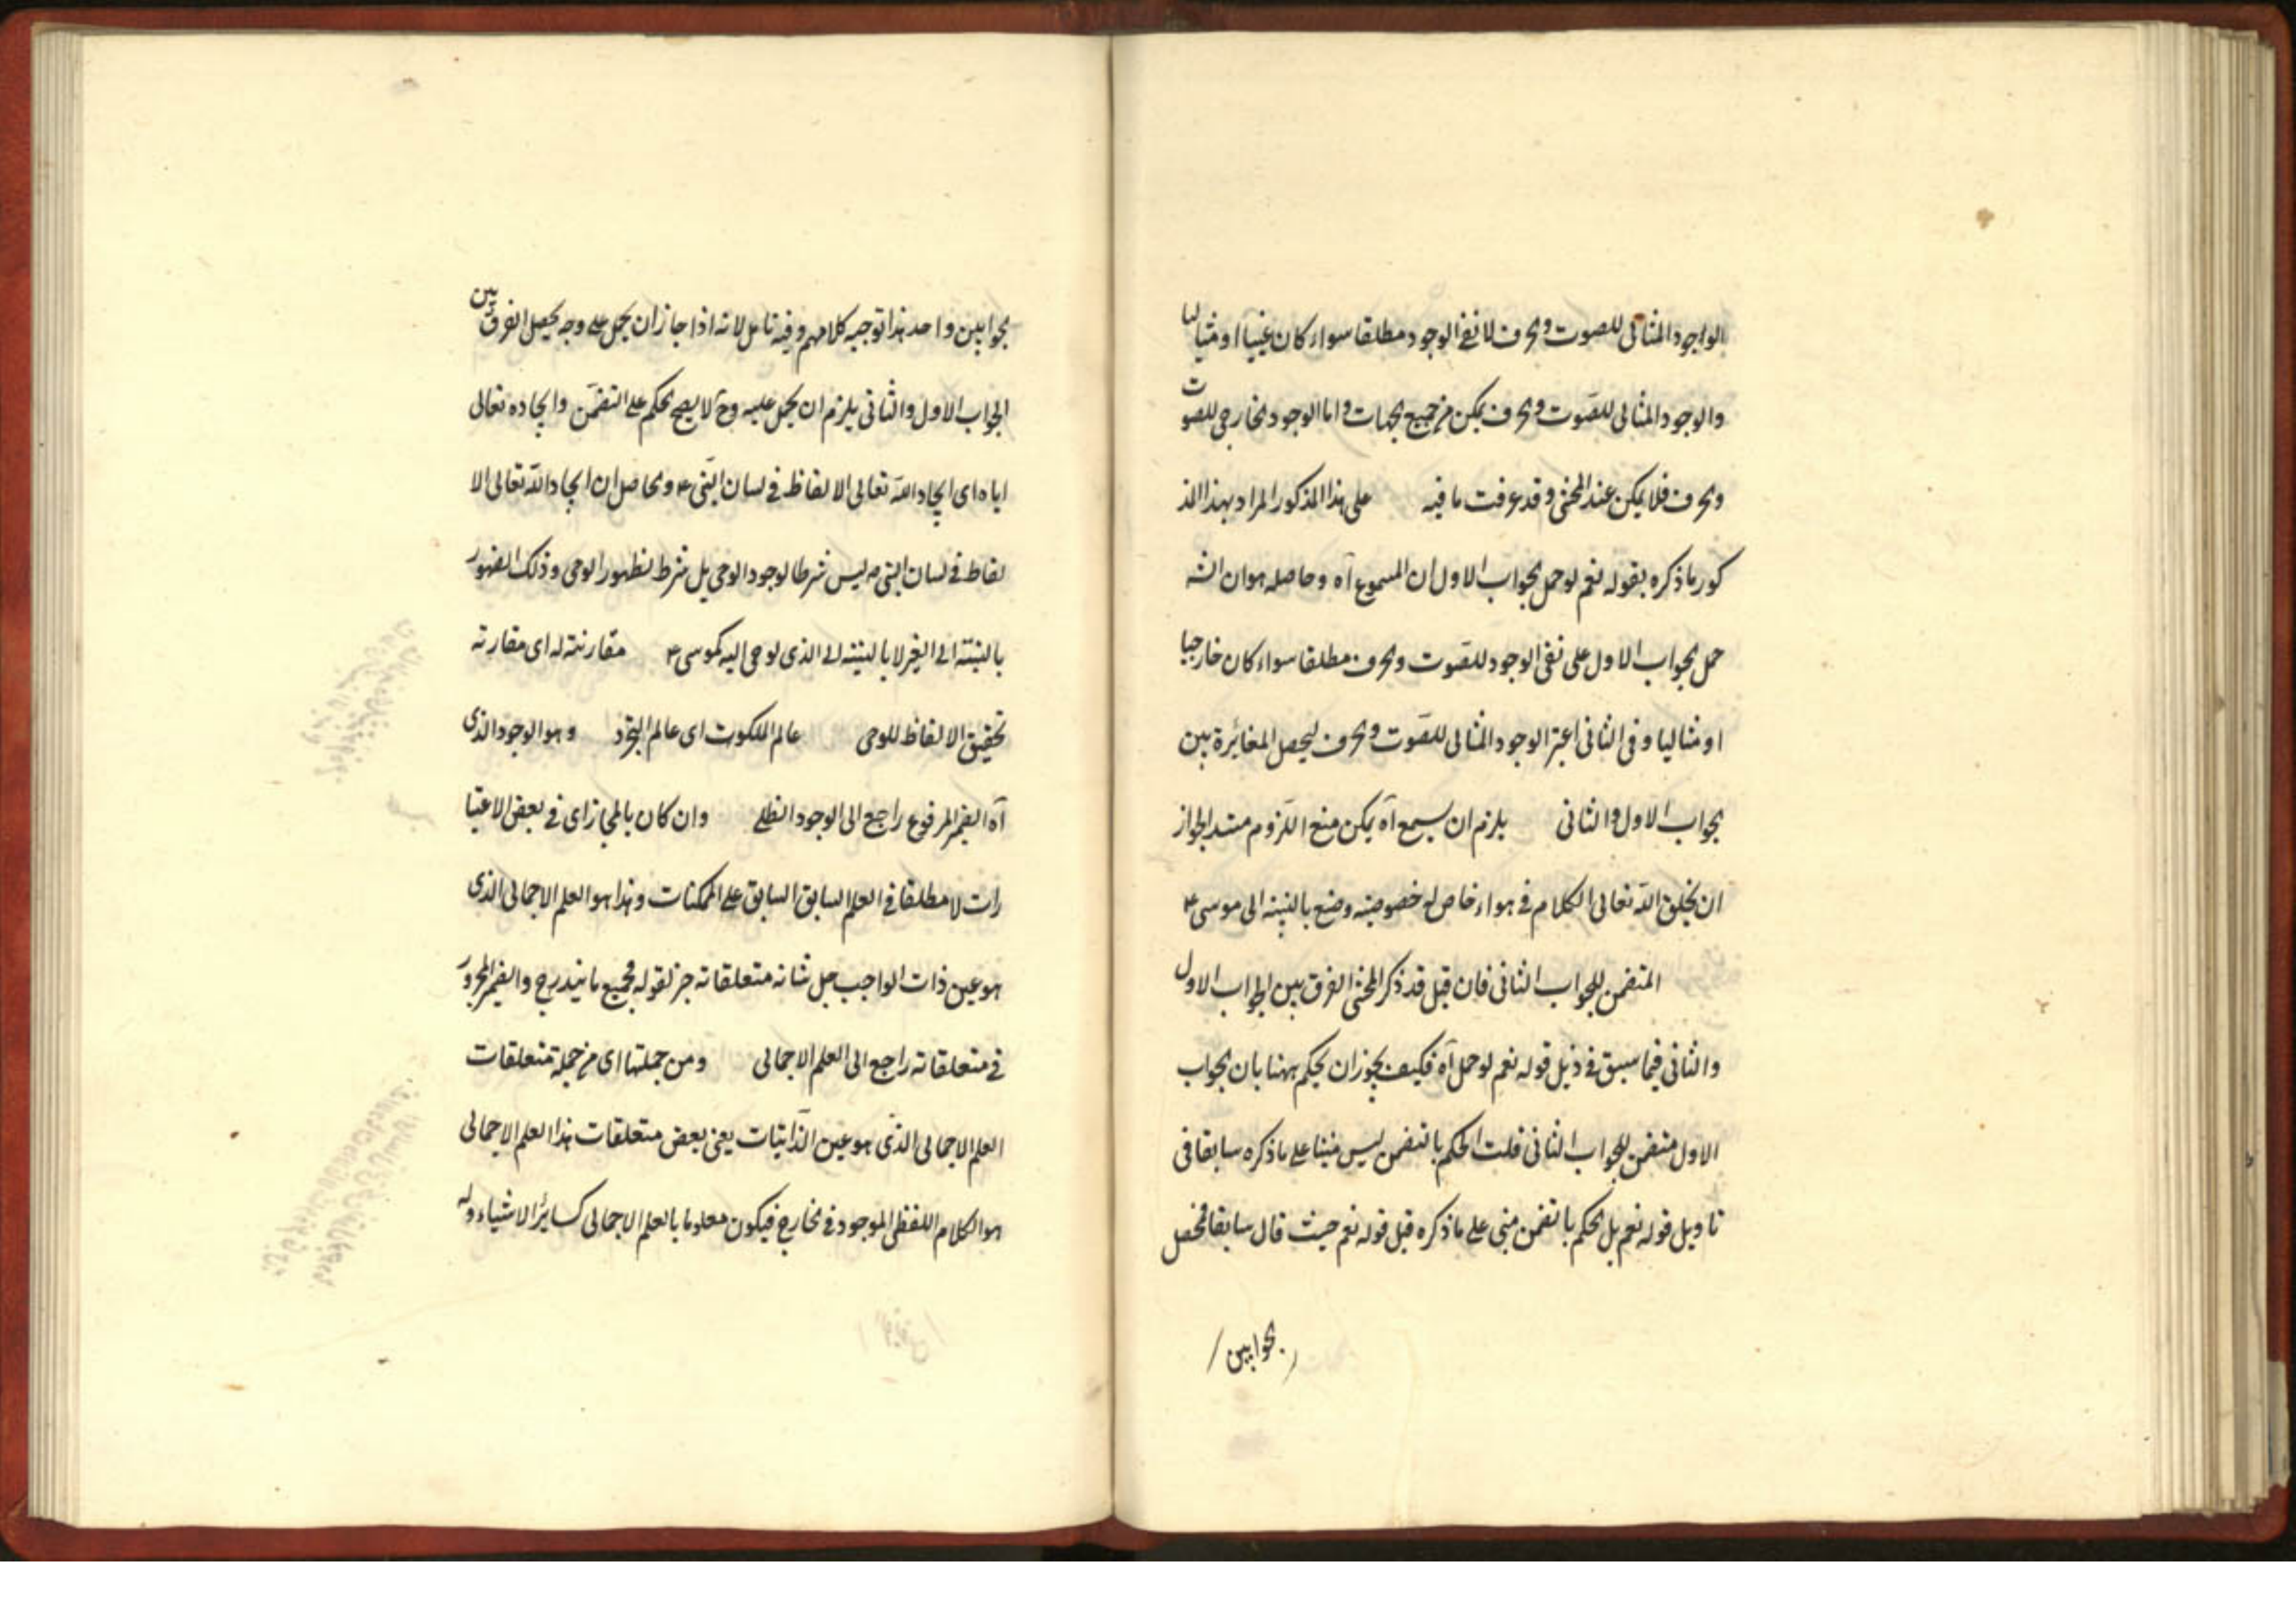 الواجود المثالى للصوت والحرف لا نفى الوجود مطلقا سواء كان غيبيا او مثاليا
والوجود المثالى للصوت والحرف يمكن من جميع الجهات واما الوجود الخارجى للصوت
والحرف فلا يمكن عند المحشى وقد عرفت ما فيه على هذا المذكور المراد بهذا المذ
كور ما ذكره بقوله نعم لو حمل الجواب الاول ان المسموع آه وحاصله هو ان الشه
حمل الجواب الاول على نفى الوجود للصوت والحرف مطلقا سواء كان خارجيا
او مثاليا وفى الثانى اعتبر الوجود المثالى للصوت والحرف ليحصل المغائرة بين
الجواب الاول والثانى يلزم ان يسمع آه يمكن منع اللزوم مستند الجواز
ان يخلق الله تعالى الكلام فى هواء خاص له خصوصية وضع بالنسبة الى موسى ع
المتضمن للجواب الثانى فان قيل قد ذكر المحشى الفرق بين الجواب الاول
والثانى فيما سبق فى ذيل قوله نعم لو حمل آه فكيف يجوز ان يحكم ههنا بان الجواب
الاول متضمن للجواب الثانى قلت الحكم بالتضمن ليس مبنيا على ما ذكره سابقا فى
تاويل قوله نعم بل الحكم بالتضمن مبنى على ما ذكره قبل قوله نعم حيث قال سابقا فحصل
الجوابين
الجوابين واحد هذا توجيه كلامهم وفيه تامل لانه اذا جاز ان يحمل على وجه يحصل الفرق بين
الجواب الاول والثانى يلزم ان يحمل عليه وح لا يصح الحكم على التضمن وايجاده تعالى
اياه اى ايجاد الله تعالى الالفاظ فى لسان النبى ع والحاصل ان ايجاد الله تعالى الا
لفاظ فى لسان النبى ص ليس شرطا لوجود الوحى بل شرط لظهور الوحى وذلك الظهور
بالنسبة الى الغير لا بالنسبة الى الذى يوحى اليه كموسى ع مقارنته له اى مقارنه
تحقيق الالفاظ للوحى عالم الملكوت اى عالم التجرد وهو الوجود الذى
آه الضمير المرفوع راجع الى الوجود الظلى وان كان بالمجاز اى فى بعض الاعتبا
رات لا مطلقا فى العلم السابق السابق على الممكنات وهذا هو العلم الاجمالى الذى
هو عين ذات الواجب جل شانه متعلقاته خبر لقوله فجميع ما يندرج والضمير المجرور
فى متعلقاته راجع الى العلم الاجمالى ومن جملتها اى من جملة متعلقات
العلم الاجمالى الذى هو عين الذاتيات يعنى بعض متعلقات هذا العلم الاجمالى
هو الكلام اللفظى الموجود فى الخارج فيكون معلوما بالعلم الاجمالى كسائر الاشياء وله